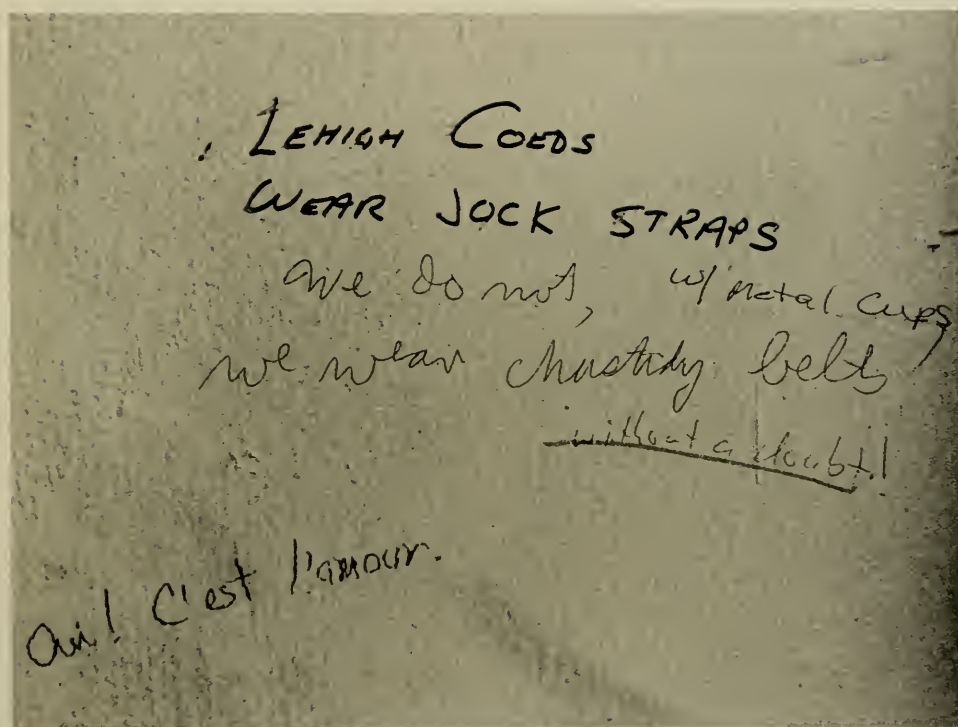 LEHIGH COEDS
WEAR JOCK STRAPS
w/ metal cups
we do not,
we wear chastidy belts
without a doubt!
Oui! C'est l'amour.